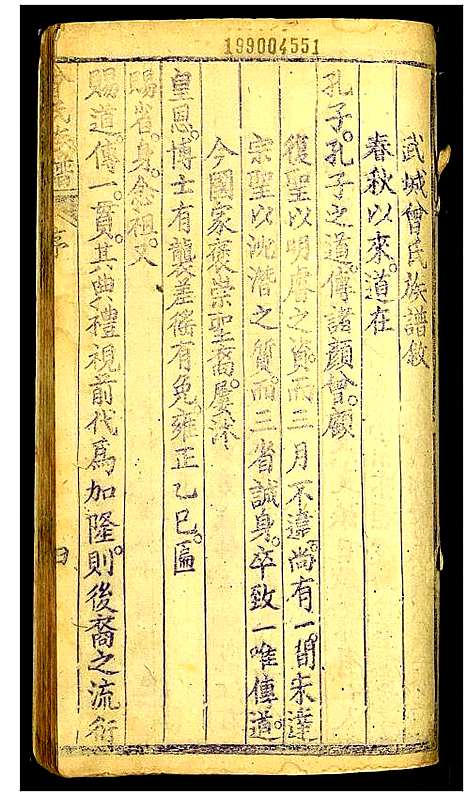 199004551
武城曾氏族譜敘
春秋以來。道在
孔子。孔子之道。傳諸顏曾。顧
復聖以明睿之資。而三月不違。尚有一間未達
宗聖以沈潛之質。而三省誠身。卒致一唯傳道。
今國家褒崇聖裔。屢沐
皇恩。博士有襲。差徭有免。雍正乙巳。匾
賜省身。念祖。又
賜道傳一貫。其典禮視前代爲加隆。則後裔之流衍
序